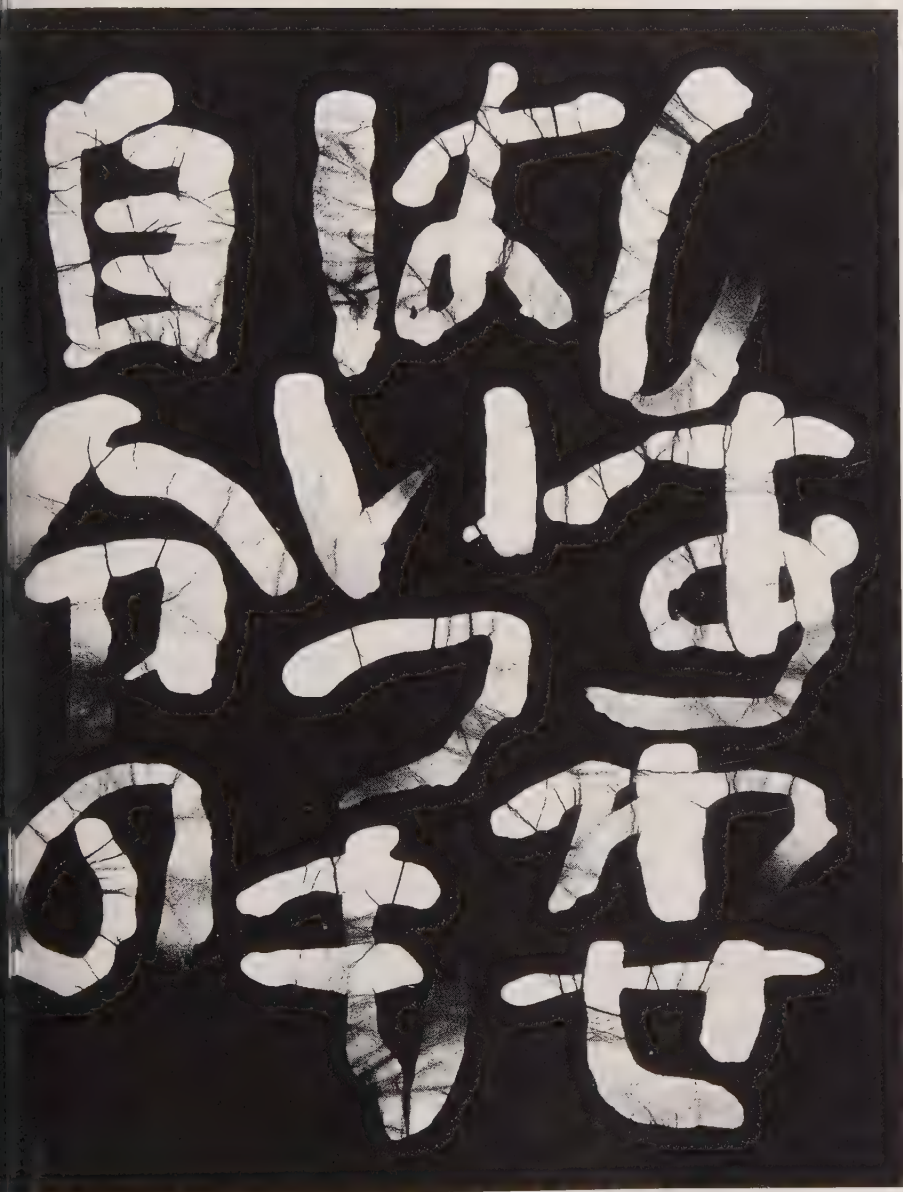 しあわせ
はいつも
自分の